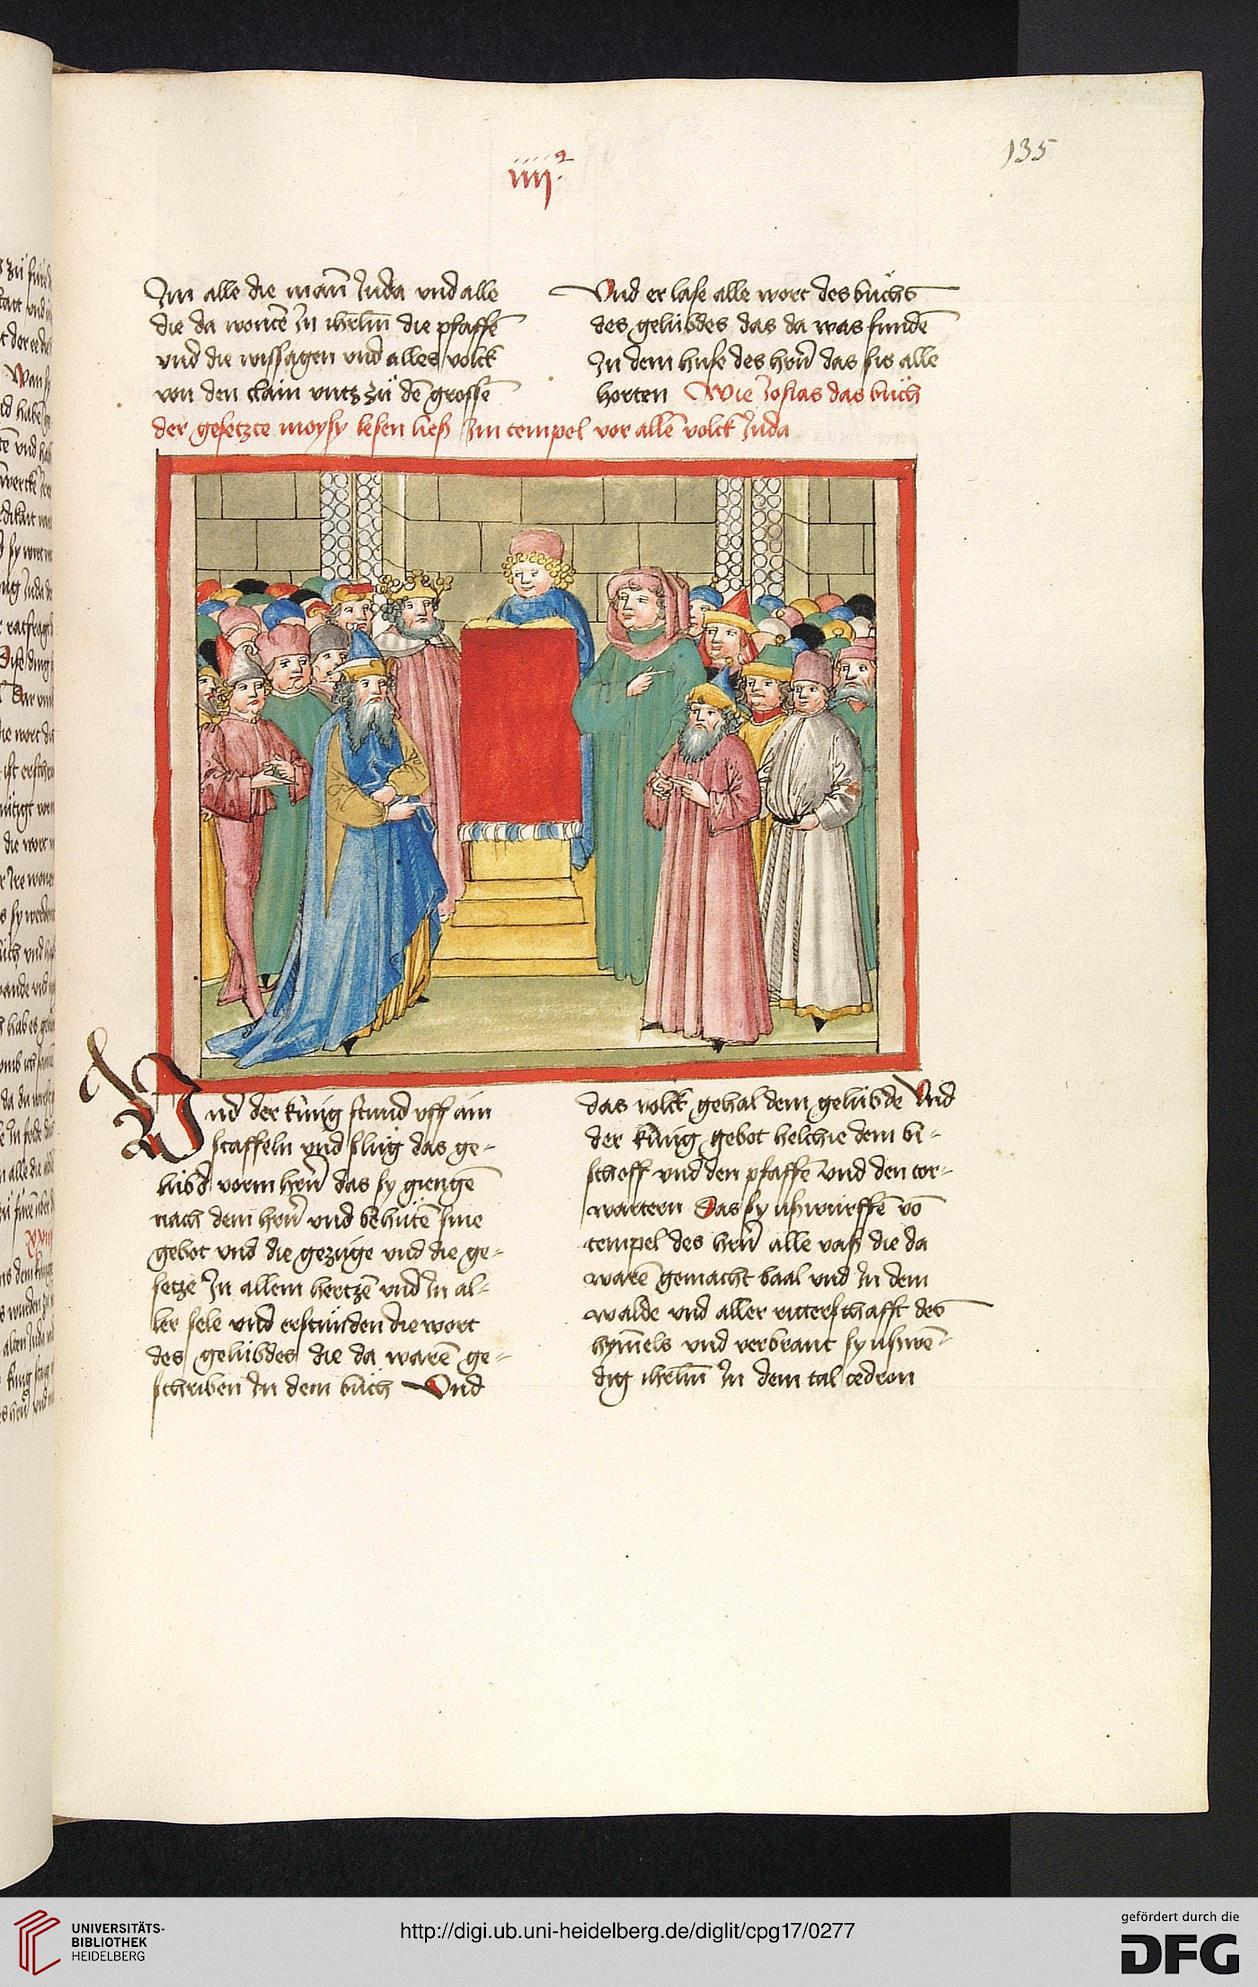 135
iiij.
Im alle die man̄ Juda vnd alle
die da wontē In ihrlm̄ die pfaffē
vnd die wissagen vnd alles volck
von den clain vntz zů dē grossē
Vnd er lase alle wort des bůchs
des gelübdes das da was fundē
In dem huse des hrn̄ das sis alle
horten Wie Josias das bůch
der gesetzte moysy lesen ließ Im tempel vor allē volck Juda
Vnd der künig stund vff ain
staffeln vnd slůg das ge-
lübd vorm hrn̄ das sy giengē
nach dem hrn̄ vnd behütē sine
gebot vnd die gezüge vnd die ge-
setze In allem hertzē vnd In al-
ler sele vnd erstunden die wort
des gelübdes die da warē ge-
schriben In dem bůch Vnd
das volck gehal dem gelübde Vnd
der künig gebot helchie dem bi-
schoff vnd den pfaffē vnd den tor-
wartern Das sy ußwürffē vō
tempel des hrn̄ alle vaß die da
warē gemacht baal vnd In dem
walde vnd aller ritterschafft des
hym̄els vnd verbrant sy ußwē-
dig ihrlm̄ In dem tal cedron
UNIVERSITÄTS-
BIBLIOTHEK
HEIDELBERG
http://digi.ub.uni-heidelberg.de/diglit/cpg17/0277
gefördert durch die
DFG